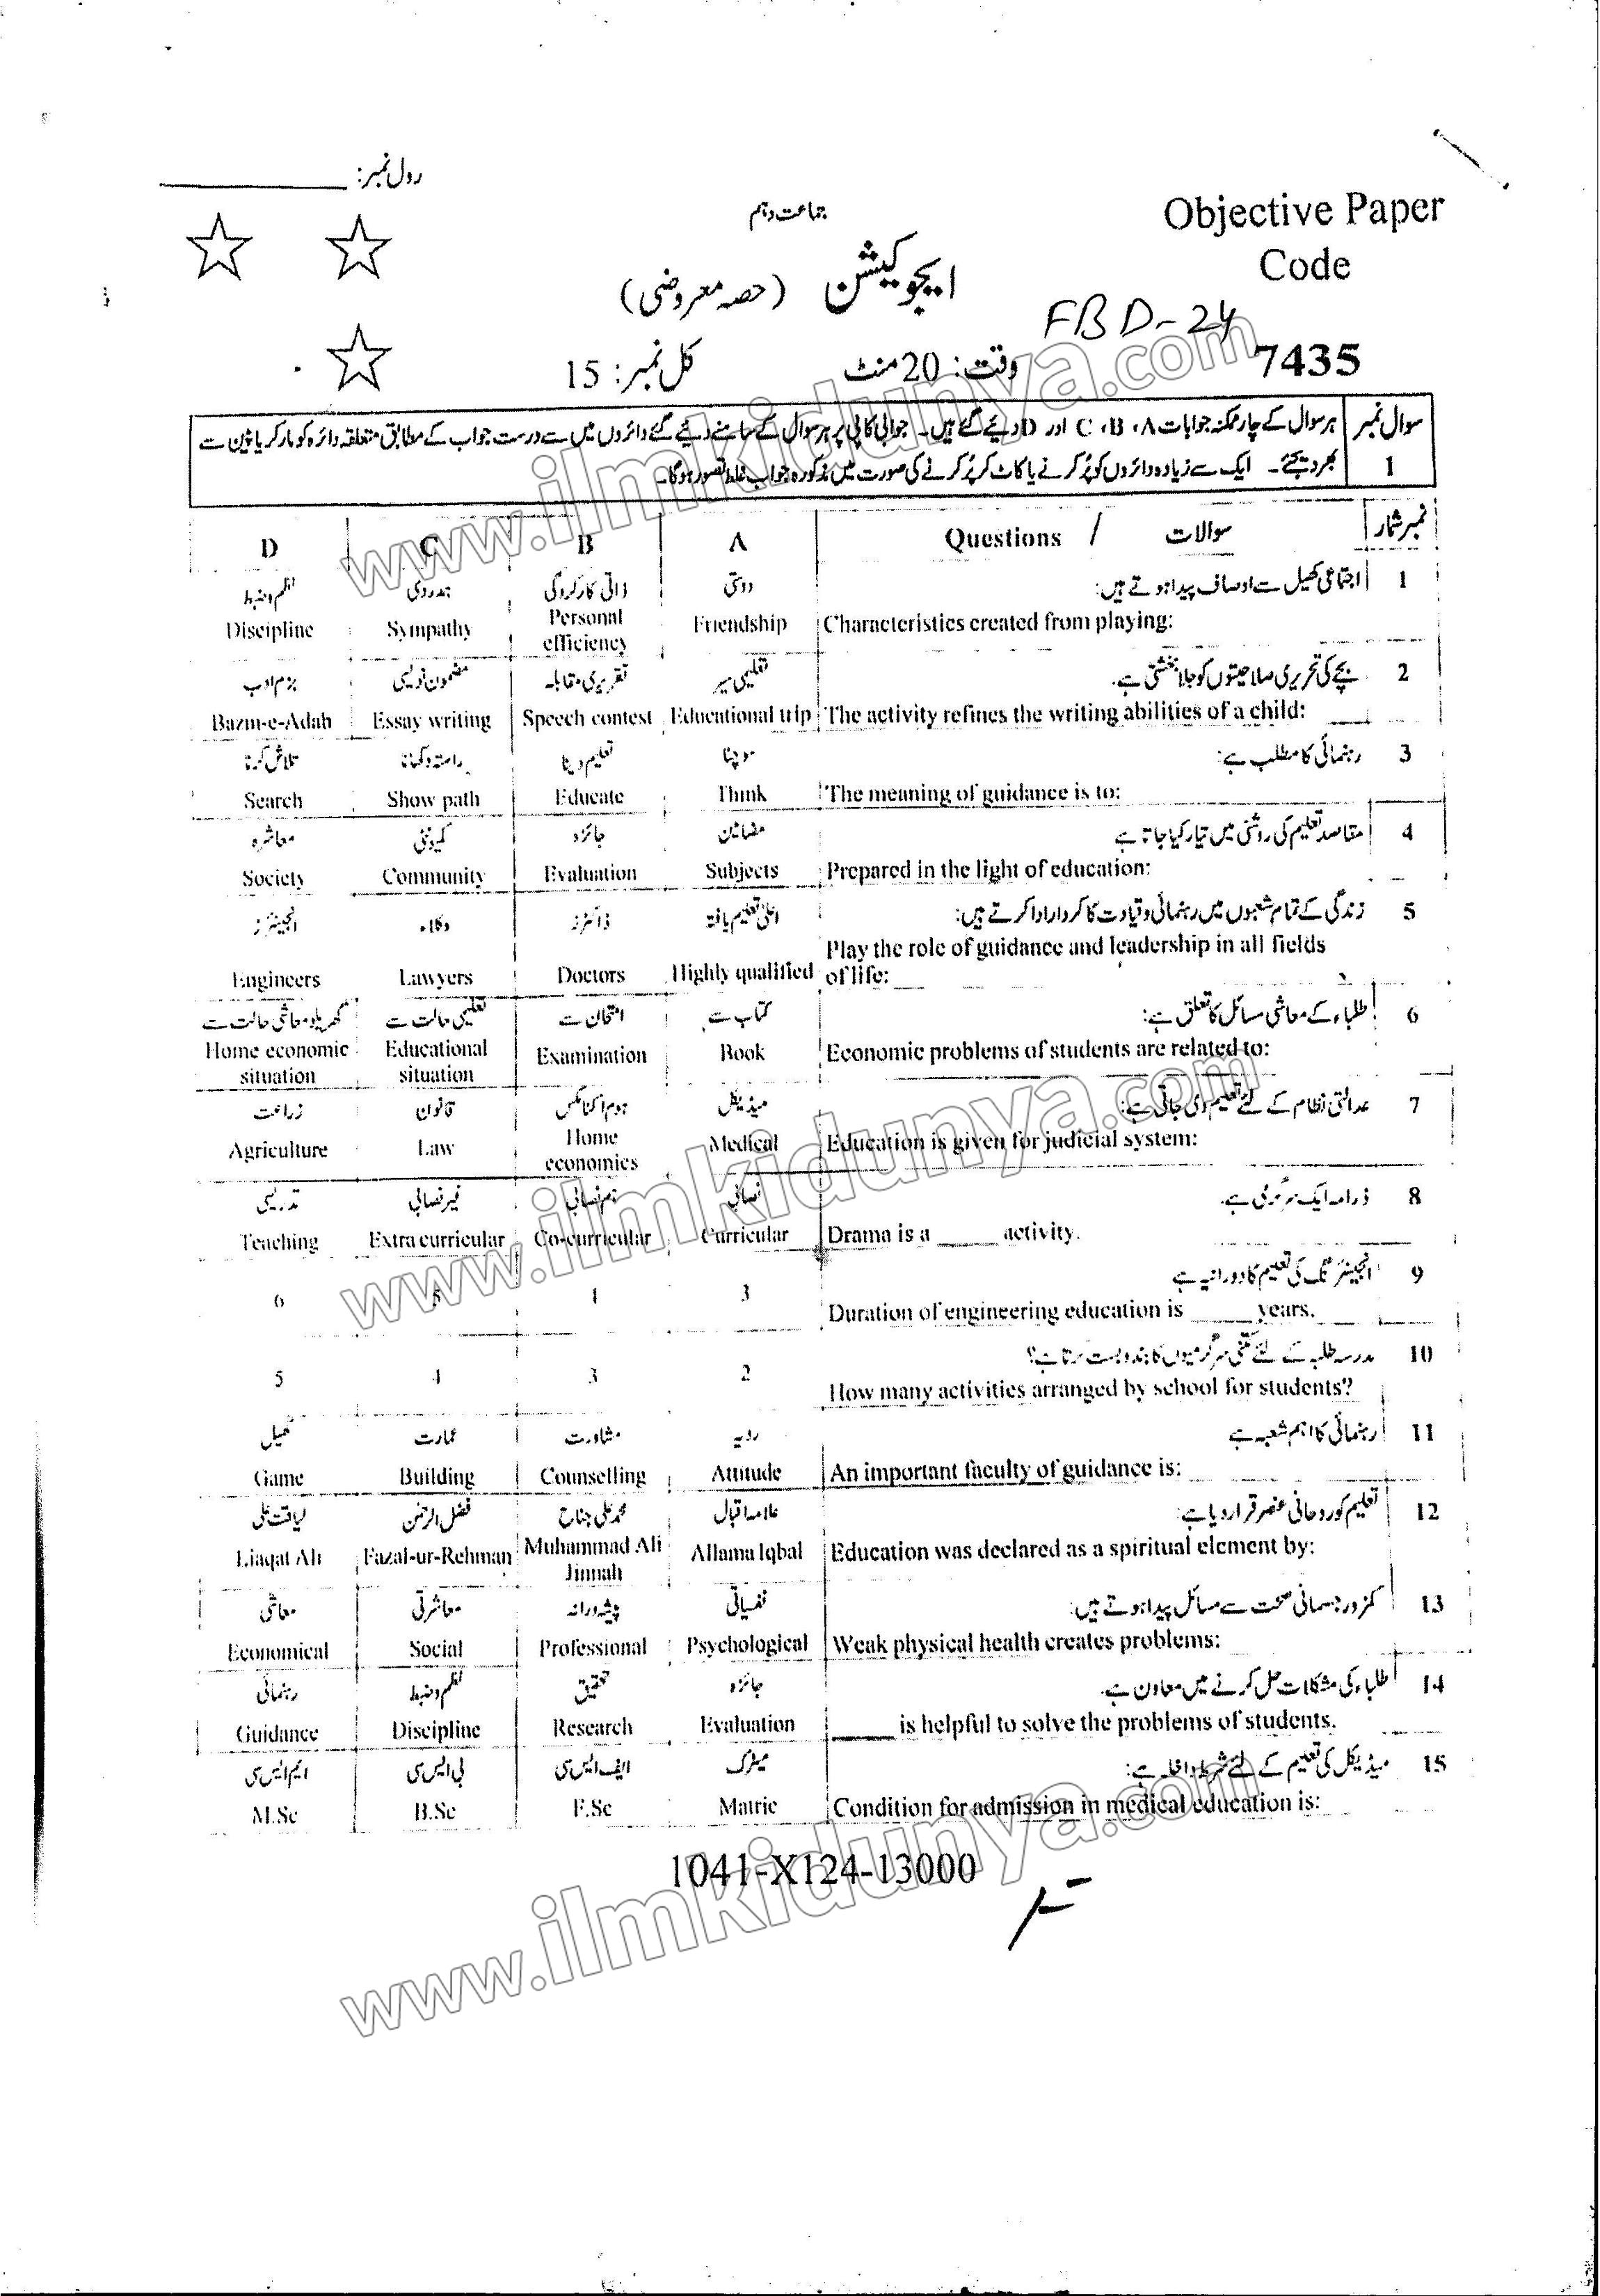 رول نمبر:
جماعت دہم
Objective Paper
Code
ایجوکیشن (حصہ معروضی)
FBD-24
7435
وقت: 20 منٹ
کل نمبر: 15
سوال نمبر 1
ہر سوال کے چار ممکنہ جوابات A، B، C اور D دیئے گئے ہیں۔ جوابی کاپی پر ہر سوال کے سامنے دیئے گئے دائروں میں سے درست جواب کے مطابق متعلقہ دائرہ کو مارکر یا پین سے
بھر دیجئے۔ ایک سے زیادہ دائروں کو پُر کرنے یا کاٹ کر پُر کرنے کی صورت میں مذکورہ جواب غلط تصور ہوگا۔
D C B A Questions / سوالات نمبر شمار
نظم و ضبط ہمدردی ذاتی کارکردگی دوستی اجتماعی کھیل سے اوصاف پیدا ہوتے ہیں: 1
Discipline Sympathy Personal efficiency Friendship Characteristics created from playing:
بزم ادب مضمون نویسی تقریری مقابلہ تعلیمی سیر بچے کی تحریری صلاحیتوں کو جلا بخشتی ہے۔ 2
Bazm-e-Adab Essay writing Speech contest Educational trip The activity refines the writing abilities of a child:
تلاش کرنا راستہ دکھانا تعلیم دینا سوچنا رہنمائی کا مطلب ہے: 3
Search Show path Educate Think The meaning of guidance is to:
معاشرہ کمیونٹی جائزہ مضامین مقاصد تعلیم کی روشنی میں تیار کیا جاتا ہے 4
Society Community Evaluation Subjects Prepared in the light of education:
انجینئرز وکلاء ڈاکٹرز اعلیٰ تعلیم یافتہ زندگی کے تمام شعبوں میں رہنمائی و قیادت کا کردار ادا کرتے ہیں: 5
Engineers Lawyers Doctors Highly qualified Play the role of guidance and leadership in all fields
of life:
گھریلو معاشی حالت سے تعلیمی حالت سے امتحان سے کتاب سے طلباء کے معاشی مسائل کا تعلق ہے: 6
Home economic situation Educational situation Examination Book Economic problems of students are related to:
زراعت قانون ہوم اکنامکس میڈیکل عدالتی نظام کے لئے تعلیم دی جاتی ہے: 7
Agriculture Law Home economics Medical Education is given for judicial system:
تدریسی غیر نصابی ہم نصابی نصابی ڈرامہ ایک سرگرمی ہے۔ 8
Teaching Extra curricular Co-curricular Curricular Drama is a _____ activity.
انجینئرنگ کی تعلیم کا دورانیہ ہے 9
6 5 4 3 Duration of engineering education is _____ years.
مدرسہ طلبہ کے لئے کتنی سرگرمیوں کا بندوبست کرتا ہے؟ 10
5 4 3 2 How many activities arranged by school for students?
کھیل عمارت مشاورت رویہ رہنمائی کا اہم شعبہ ہے 11
Game Building Counselling Attitude An important faculty of guidance is:
لیاقت علی فضل الرحمن محمد علی جناح علامہ اقبال تعلیم کو روحانی عنصر قرار دیا ہے: 12
Liaqat Ali Fazal-ur-Rehman Muhammad Ali Jinnah Allama Iqbal Education was declared as a spiritual element by:
معاشی معاشرتی پیشہ ورانہ نفسیاتی کمزور جسمانی صحت سے مسائل پیدا ہوتے ہیں: 13
Economical Social Professional Psychological Weak physical health creates problems:
رہنمائی نظم و ضبط تحقیق جائزہ طلباء کی مشکلات حل کرنے میں معاون ہے۔ 14
Guidance Discipline Research Evaluation _____ is helpful to solve the problems of students.
ایم ایس سی بی ایس سی ایف ایس سی میٹرک میڈیکل کی تعلیم کے لئے شرط داخلہ ہے: 15
M.Sc B.Sc F.Sc Matric Condition for admission in medical education is:
1041-X124-13000
www.ilmkidunya.com
www.ilmkidunya.com
www.ilmkidunya.com